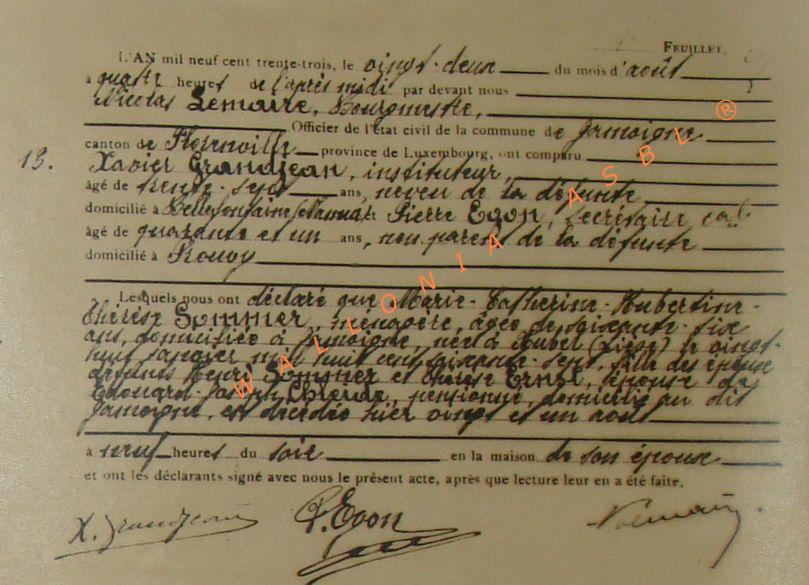 FEUILLET.
L'AN mil neuf cent trente-trois, le vingt-deux du mois d'août
à quatre heures de l'après midi par devant nous
Nicolas Lemaire, Bourgmestre,
Officier de l'état civil de la commune de Jamoigne
canton de Florenville province de Luxembourg, ont comparu
13. Xavier Grandjean, instituteur,
âgé de trente-sept ans, neveu de la défunte
domicilié à Bellefontaine Pierre Egon, secrétaire cal
âgé de quarante et un ans, non parent de la défunte
domicilié à Rouvoy
Lesquels nous ont déclaré que Marie-Catherine-Hubertine-
Thérèse Sommer, ménagère, âgée de soixante-six
ans, domiciliée à Jamoigne, née à Aubel (Liège) le vingt-
huit janvier mil huit cent soixante-sept, fille des époux
défunts Henri Sommer et Thérèse Ernst, épouse de
Edouard-Joseph pensionné, domicilié au dit
Jamoigne, est décédée hier vingt et un août
à neuf heures du soir en la maison de son époux
et ont les déclarants signé avec nous le présent acte, après que lecture leur en a été faite.
X. Grandjean P. Egon NLemaire
WALLONIA ASBL ®